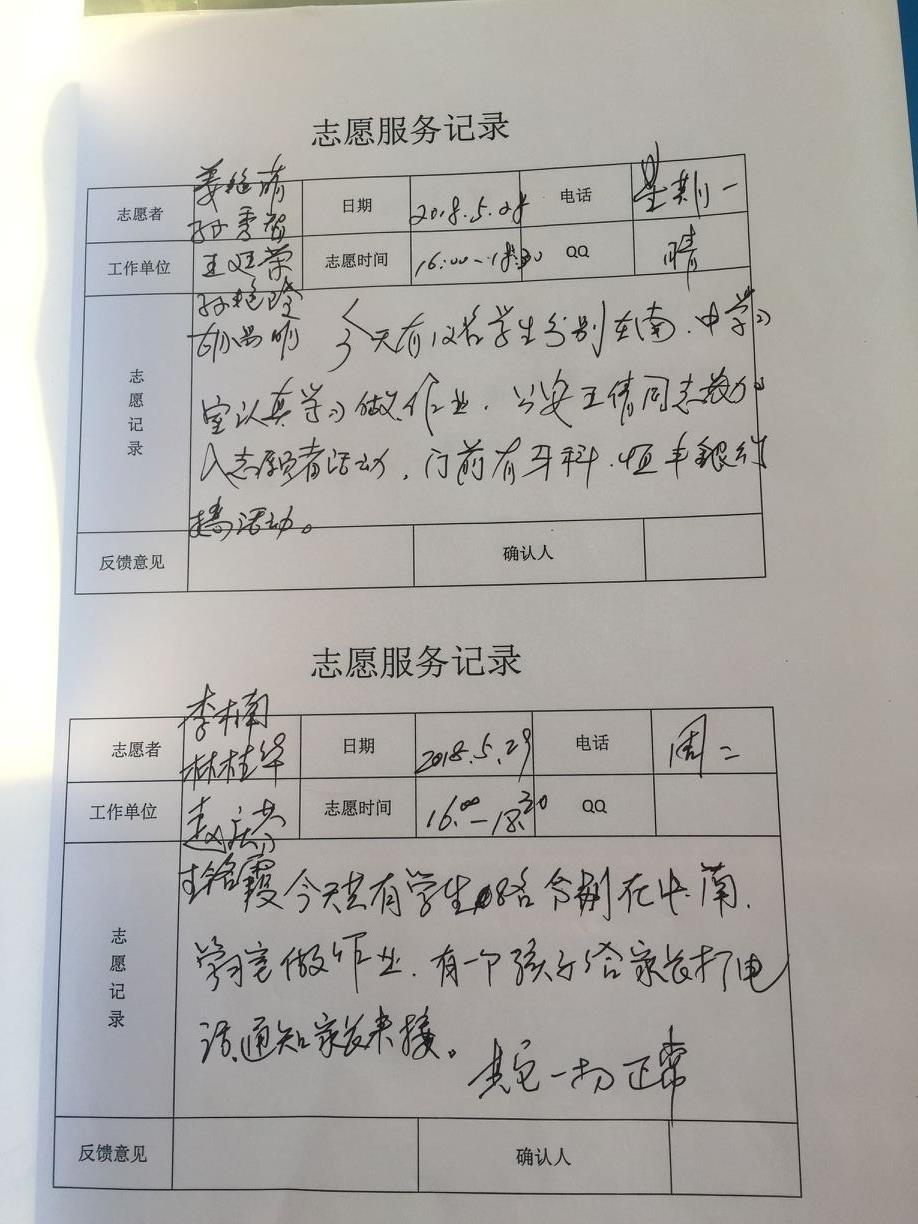 志愿服务记录
志愿者 姜艳 日期 2018.5.28 电话 星期一
孙秀
工作单位 王廷荣 志愿时间 16:00-18:30 QQ 晴
孙艳
胡昌明 今天有12名学生分别在南.中学习
志愿记录
室认真学习做作业.公安王倩同志放加
入志愿者活动，门前有牙科.恒丰银行
搞活动。
反馈意见 确认人
志愿服务记录
李楠
志愿者 林桂华 日期 2018.5.29 电话 周二
工作单位 赵庆 志愿时间 16:00-18:30 QQ
霞 今天共有学生 名分别在中.南.
志愿记录
学习室做作业.有一个孩子给家长打电
话,通知家长来接。
其它一切正常
反馈意见 确认人